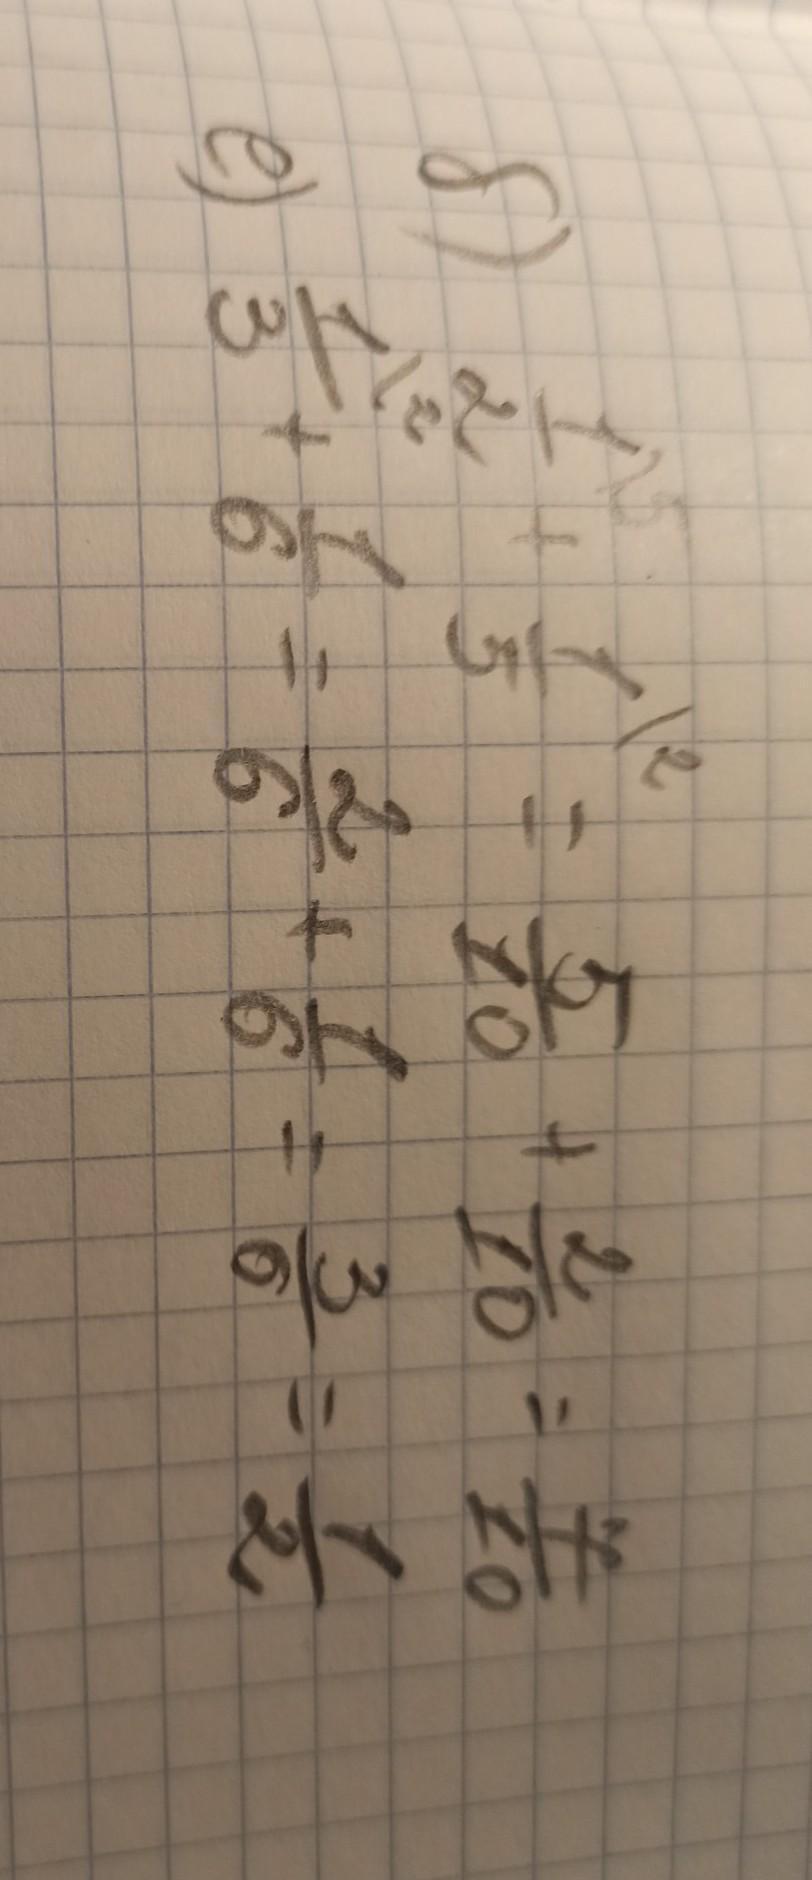 б) 1/2\5 + 1/5\2 = 5/10 + 2/10 = 7/10
е) 1/3\2 + 1/6 = 2/6 + 1/6 = 3/6 = 1/2